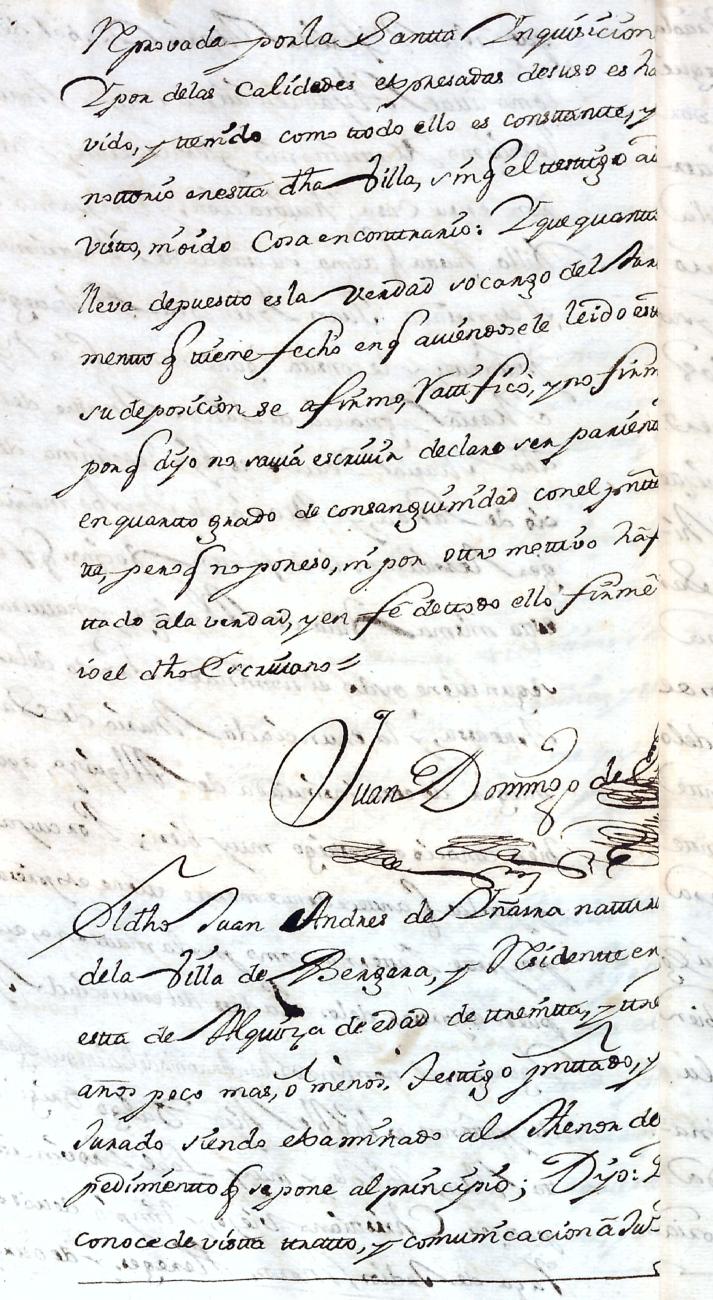 Reprovada por la Santta Inquisicion
Y por de las Calidades expresadas desuso es ha
vido, y ttenido como ttodo ello es consttantte, y
nottorio en estta dha Villa, sin q el ttesttigo aia
vistto, ni oido Cosa en conttrario: Y que quantto
lleva depuestto es la verdad so cargo del Jura
mentto q ttiene fecho en q aviendosele leido estta
su deposicion se afirmo, rattificò, y no firmò
por q dijo no savia escrivir declaro ser parientte
en quartto grado de consanguinidad con el pretten
tte, pero q no por eso, ni por ottro mottivo ha f
ttado â la verdad, y en feè de ttodo ello firmè
io el dho Escrivano =
Juan Domingo de
El dho Juan Andres de Vñarra natural
de la Villa de Bergara, y Residentte en
estta de Alquiza de edad de ttreintta, y ttres
años poco mas, ò menos. Testtigo presenttado, y
Jurado siendo examinado al Thenor del
pedimientto q se pone al principio; Dijo: Q
conoce de vistta ttratto, y comunicacion â Ju